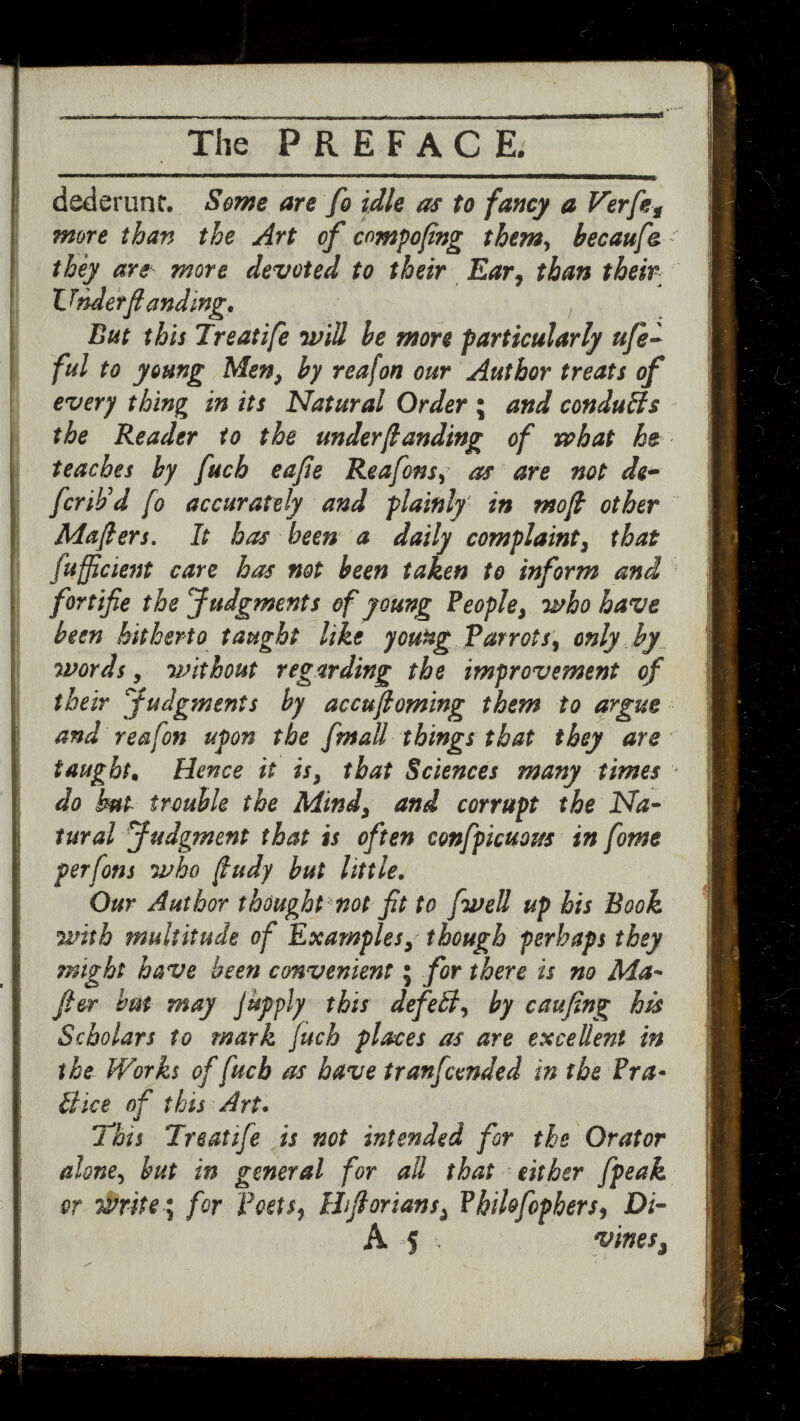 The PREFACE.
dederunt. Some are ſo idle as to fancy a Verſe,
more than the Art of compoſing them, becauſe
they are more devoted to their Ear, than their
Underſtanding.
But this Treatiſe will be more particularly uſe-
ful to young Men, by reaſon our Author treats of
every thing in its Natural Order; and conducts
the Reader to the underſtanding of what he
teaches by ſuch eaſie Reaſons, as are not de-
ſcrib'd ſo accurately and plainly in moſt other
Maſters. It has been a daily complaint, that
ſufficient care has not been taken to inform and
fortifie the Judgments of young People, who have
been hitherto taught like young Parrots, only by
words, without regarding the improvement of
their Judgments by accuſtoming them to argue
and reaſon upon the ſmall things that they are
taught. Hence it is, that Sciences many times
do but trouble the Mind, and corrupt the Na-
tural Judgment that is often conſpicuous in ſome
perſons who ſtudy but little.
Our Author thought not fit to ſwell up his Book
with multitude of Examples, though perhaps they
might have been convenient; for there is no Ma-
ſter but may ſupply this defect, by cauſing his
Scholars to mark ſuch places as are excellent in
the Works of ſuch as have tranſcended in the Pra-
ctice of this Art.
This Treatiſe is not intended for the Orator
alone, but in general for all that either ſpeak
or write; for Poets, Hiſtorians, Philoſophers, Di-
A 5 vines,